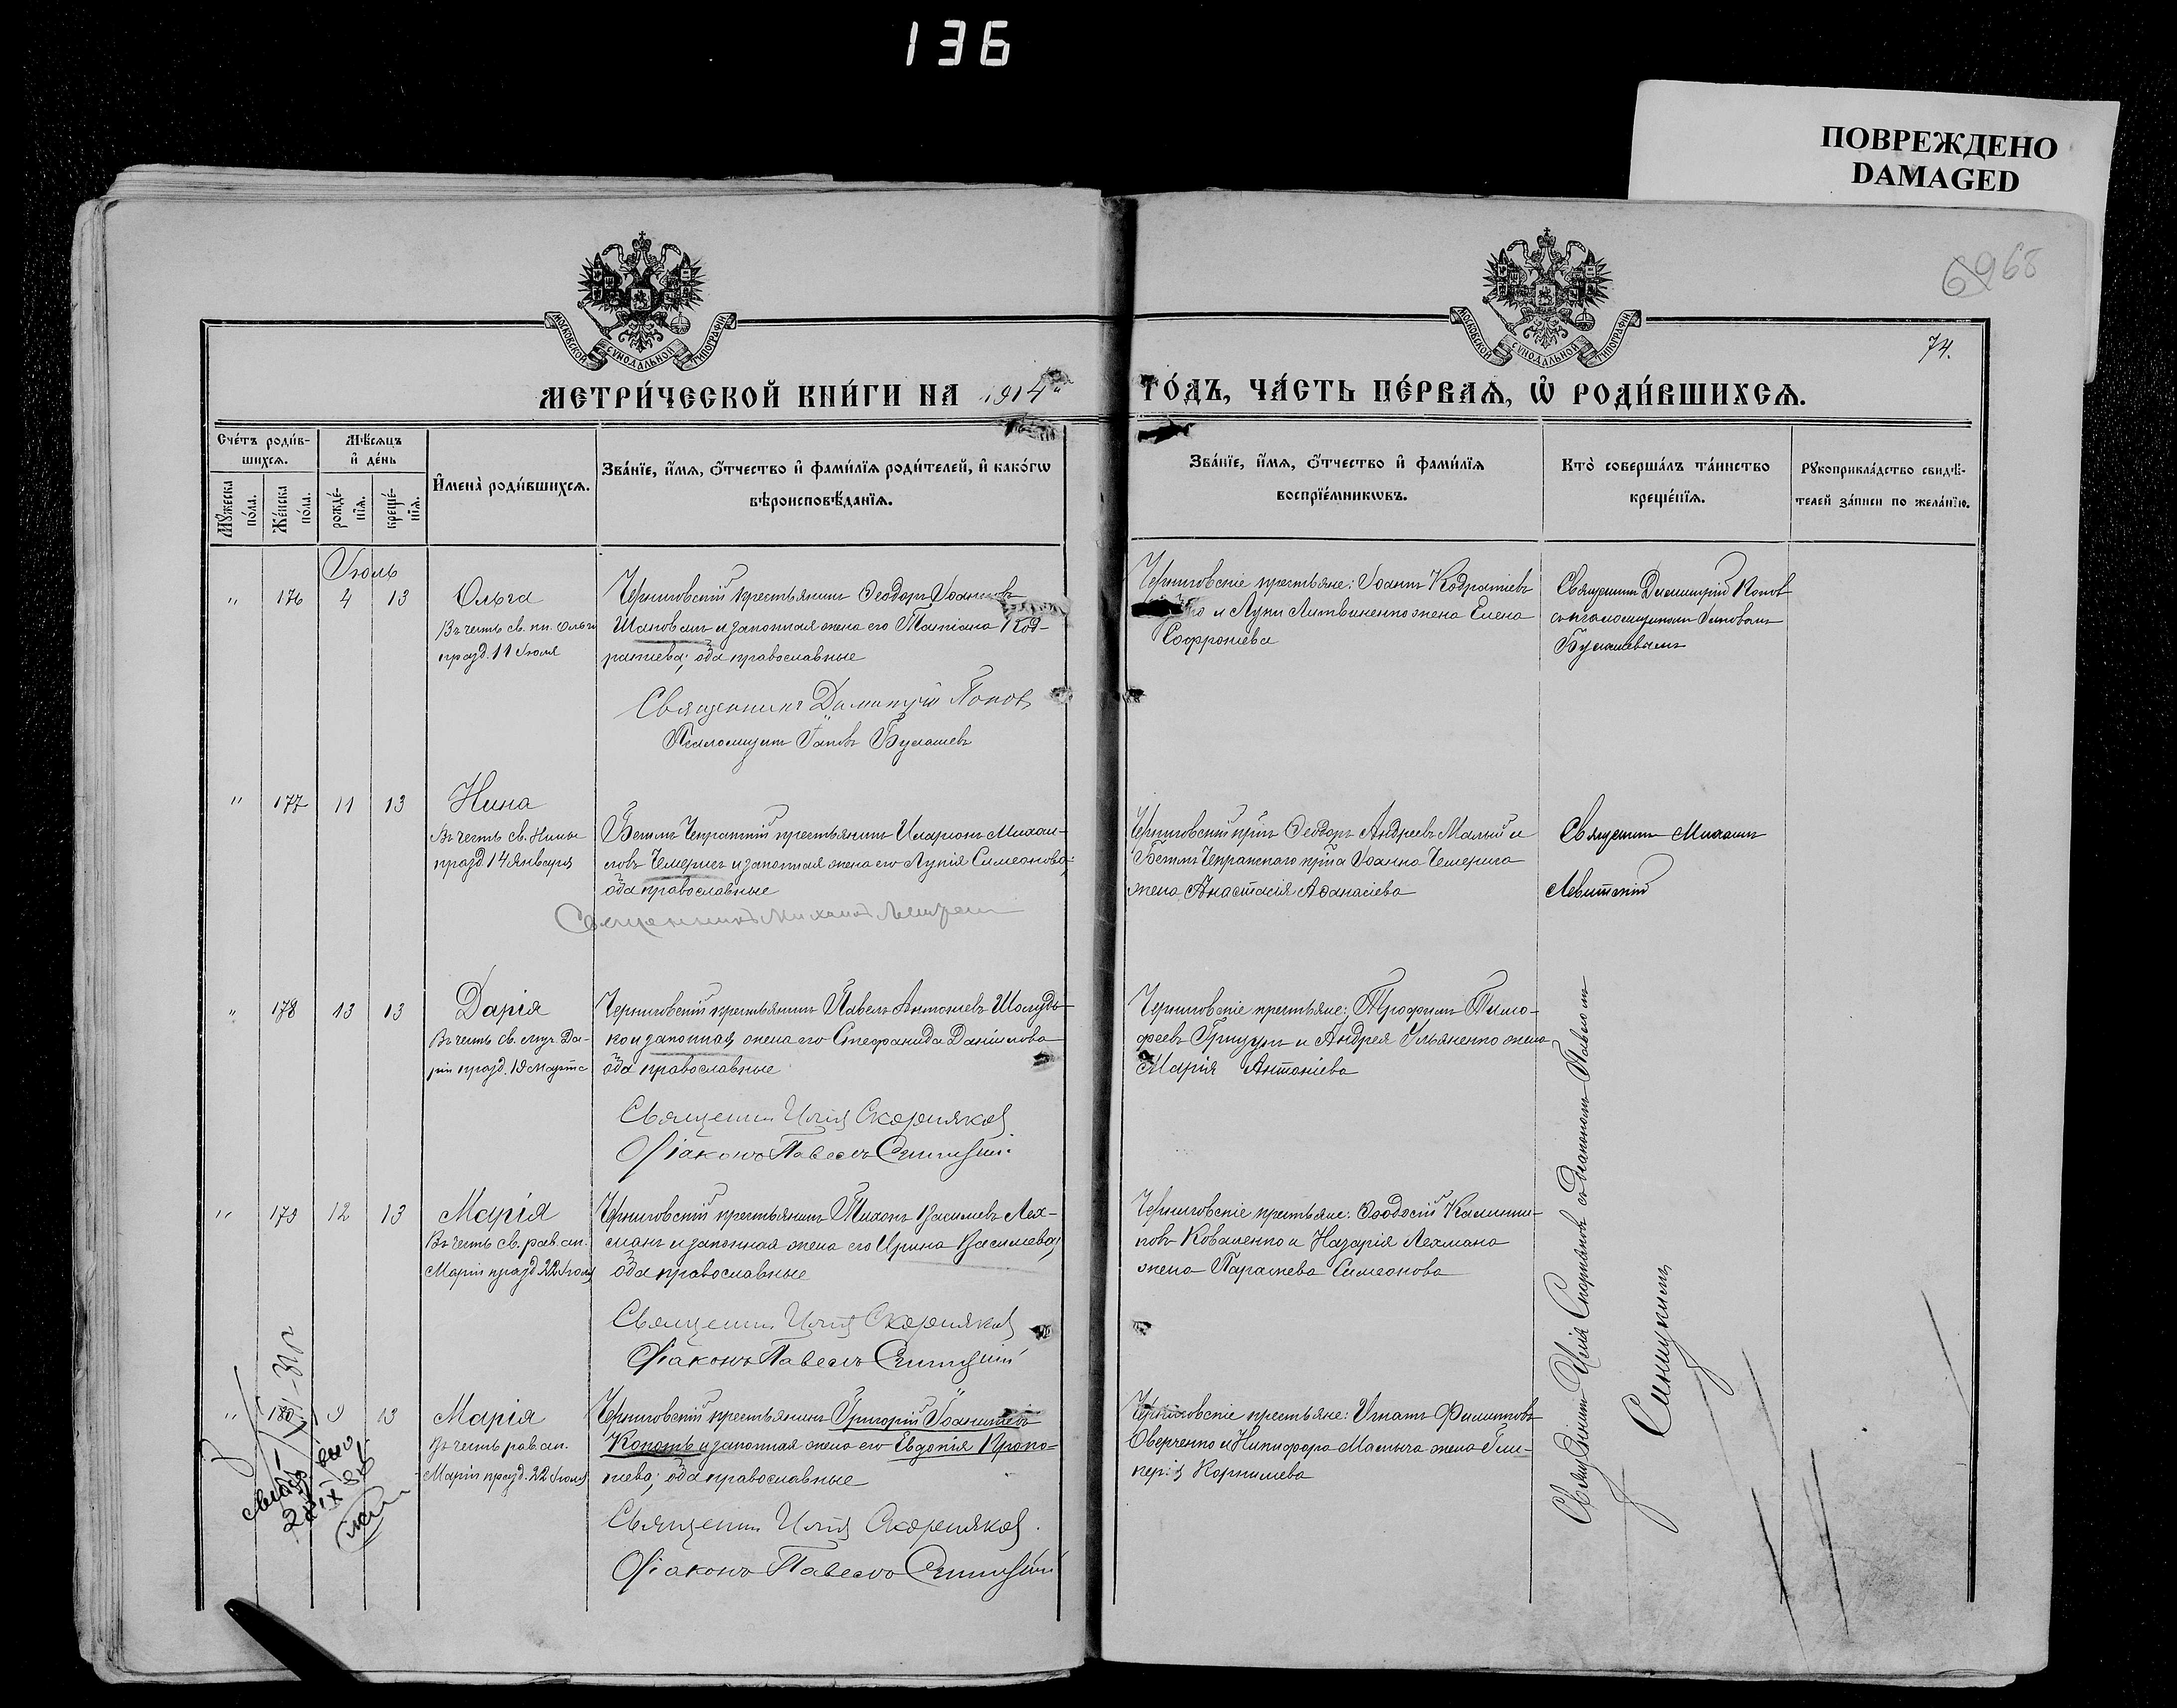 136
ПОВРЕЖДЕНО
DAMAGED
68
74.
МОСКОВСКОЙ СѴНОДАЛЬНОЙ ТИПОГРАФІИ
МОСКОВСКОЙ СѴНОДАЛЬНОЙ ТИПОГРАФІИ
МЕТРИ́ЧЕСКОЙ КНИ́ГИ НА 1914
ГО́ДЪ, ЧА́СТЬ ПЕ́РВАѦ, Ѡ҆ РОДИ́ВШИХСѦ.
Сче́тъ роди́в-
шихсѧ.
Мꙋ́жеска по́ла.
Же́нска по́ла.
Мѣ́сѧцъ
и҆ де́нь
рожде́-нїѧ.
креще́-нїѧ.
И҆мена̀ роди́вшихсѧ.
Зва́нїе, и҆́мѧ, ѻ҆́тчество и҆ фами́лїѧ роди́телей, и҆ како́гѡ
вѣроисповѣ́данїѧ.
Зва́нїе, и҆́мѧ, ѻ҆́тчество и҆ фами́лїѧ
воспрїе́мникѡвъ.
Кто̀ соверша́лъ та́инство
креще́нїѧ.
Рꙋкоприкла́дство свидѣ́-
телей за́писи по жела́нїю.
Іюль
" 176 4 13
Ольга
Въ честь св. кн. Ольги
празд. 11 Іюля
Черниговскій крестьянинъ Ѳеодоръ Іоанновъ
Шаповалъ и законная жена его Татіана Код-
ратіева; оба православные
Священникъ Димитрій Поповъ
Псаломщикъ Іаковъ Булашевъ
Черниговскіе крестьяне: Іоаннъ Кодратіевъ
и Луки Литвиненко жена Елена
Софроніева
Священникъ Димитрій Поповъ
съ псаломщикомъ Іаковомъ
Булашевымъ
" 177 11 13
Нина
Въ честь св. Нины
празд. 14 Января
крестьянинъ Иларіонъ Михаи-
ловъ Чемерисъ и законная жена его Лукія Симеонова;
оба православные
Священникъ Михаилъ Левитскій
Черниговскій кр-нъ Ѳеодоръ Андреевъ Малый и
кр-на Іоанна Чемериса
жена Анастасія Аѳанасіева
Священникъ Михаилъ
Левитскій
" 178 13 13
Дарія
Въ честь св. муч. Да-
ріи празд. 19 Марта
Черниговскій крестьянинъ Павелъ Антоніевъ Шолудь-
ко и законная жена его Стефанида Даніилова
оба православные
Священникъ Илія Скорняковъ
Діаконъ Павелъ Синицкій
Черниговскіе крестьяне: Трофимъ Тимо-
феевъ Грицукъ и Андрея Ульяненко жена
Марія Антоніева
" 179 12 13
Марія
Въ честь св. рав. ап.
Маріи празд. 22 Іюля
Черниговскій крестьянинъ Тихонъ Василіевъ Лех-
манъ и законная жена его Ирина Василіева;
оба православные
Священникъ Илія Скорняковъ
Діаконъ Павелъ Синицкій
Черниговскіе крестьяне: Ѳеодосій Калинни-
ковъ Коваленко и Назарія Лехмана
жена Параскева Симеонова
" 180 9 13
Марія
Въ честь рав. ап.
Маріи празд. 22 Іюля
Черниговскій крестьянинъ Григорій Іоанникіевъ
Копоть и законная жена его Евдокія Проко-
піева; оба православные
Священникъ Илія Скорняковъ
Діаконъ Павелъ Синицкій
Черниговскіе крестьяне: Игнатъ Филипповъ
Оверченко и Никифора Малыча жена Гли-
керія Корниліева
Священникъ Илія Скорняковъ съ діакономъ Павломъ
Синицкимъ